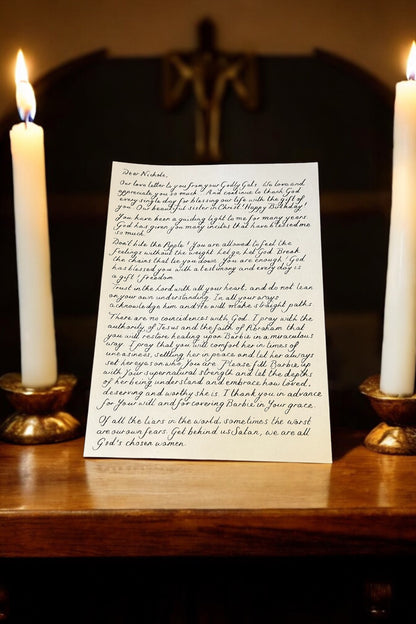 Dear Nichole,
Our love letter to you from your Godly Gals. We love and
appreciate you so much. And continue to thank God
every single day for blessing our life with the gift of
you. Our beautiful sister in Christ. Happy Birthday!
You have been a guiding light to me for many years.
God has given you many incites that have blessed me
so much.
Don't hide the Apple! You are allowed to feel the
feelings without the weight. Let go, let God. Break
the chains that tie you down. You are enough! God
has blessed you with a testimony and every day is
a gift! freedom
Trust in the Lord with all your heart, and do not lean
on your own understanding. In all your ways
acknowledge him and He will make straight paths.
There are no coincidences with God. I pray with the
authority of Jesus and the faith of Abraham that
you will restore healing upon Barbie in a miraculous
way. I pray that you will comfort her in times of
uneasiness, settling her in peace and let her always
set her eyes on who You are. Please fill Barbie up
with Your supernatural strength and let the depths
of her being understand and embrace how loved,
deserving and worthy she is. I thank you in advance
for Your will and for covering Barbie in Your grace.
Of all the liars in the world, sometimes the worst
are our own fears. Get behind us Satan, we are all
God's chosen women.